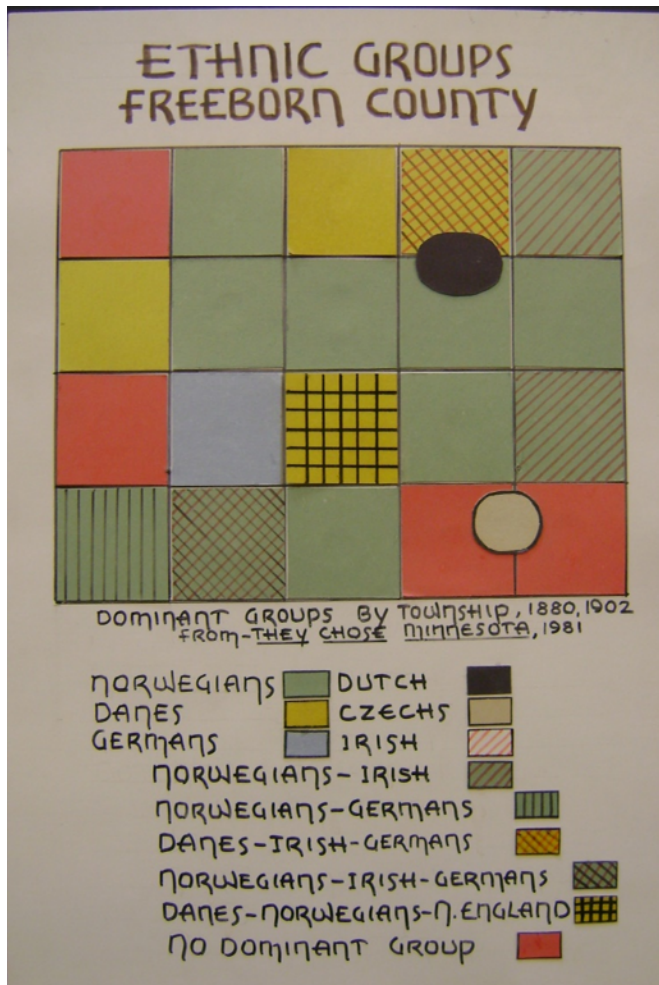 ETHNIC GROUPS
FREEBORN COUNTY
DOMINANT GROUPS BY TOWNSHIP, 1880, 1902
FROM-THEY CHOSE MINNESOTA, 1981
NORWEGIANS DUTCH
DANES CZECHS
GERMANS IRISH
NORWEGIANS-IRISH
NORWEGIANS-GERMANS
DANES-IRISH-GERMANS
NORWEGIANS-IRISH-GERMANS
DANES-NORWEGIANS-N.ENGLAND
NO DOMINANT GROUP